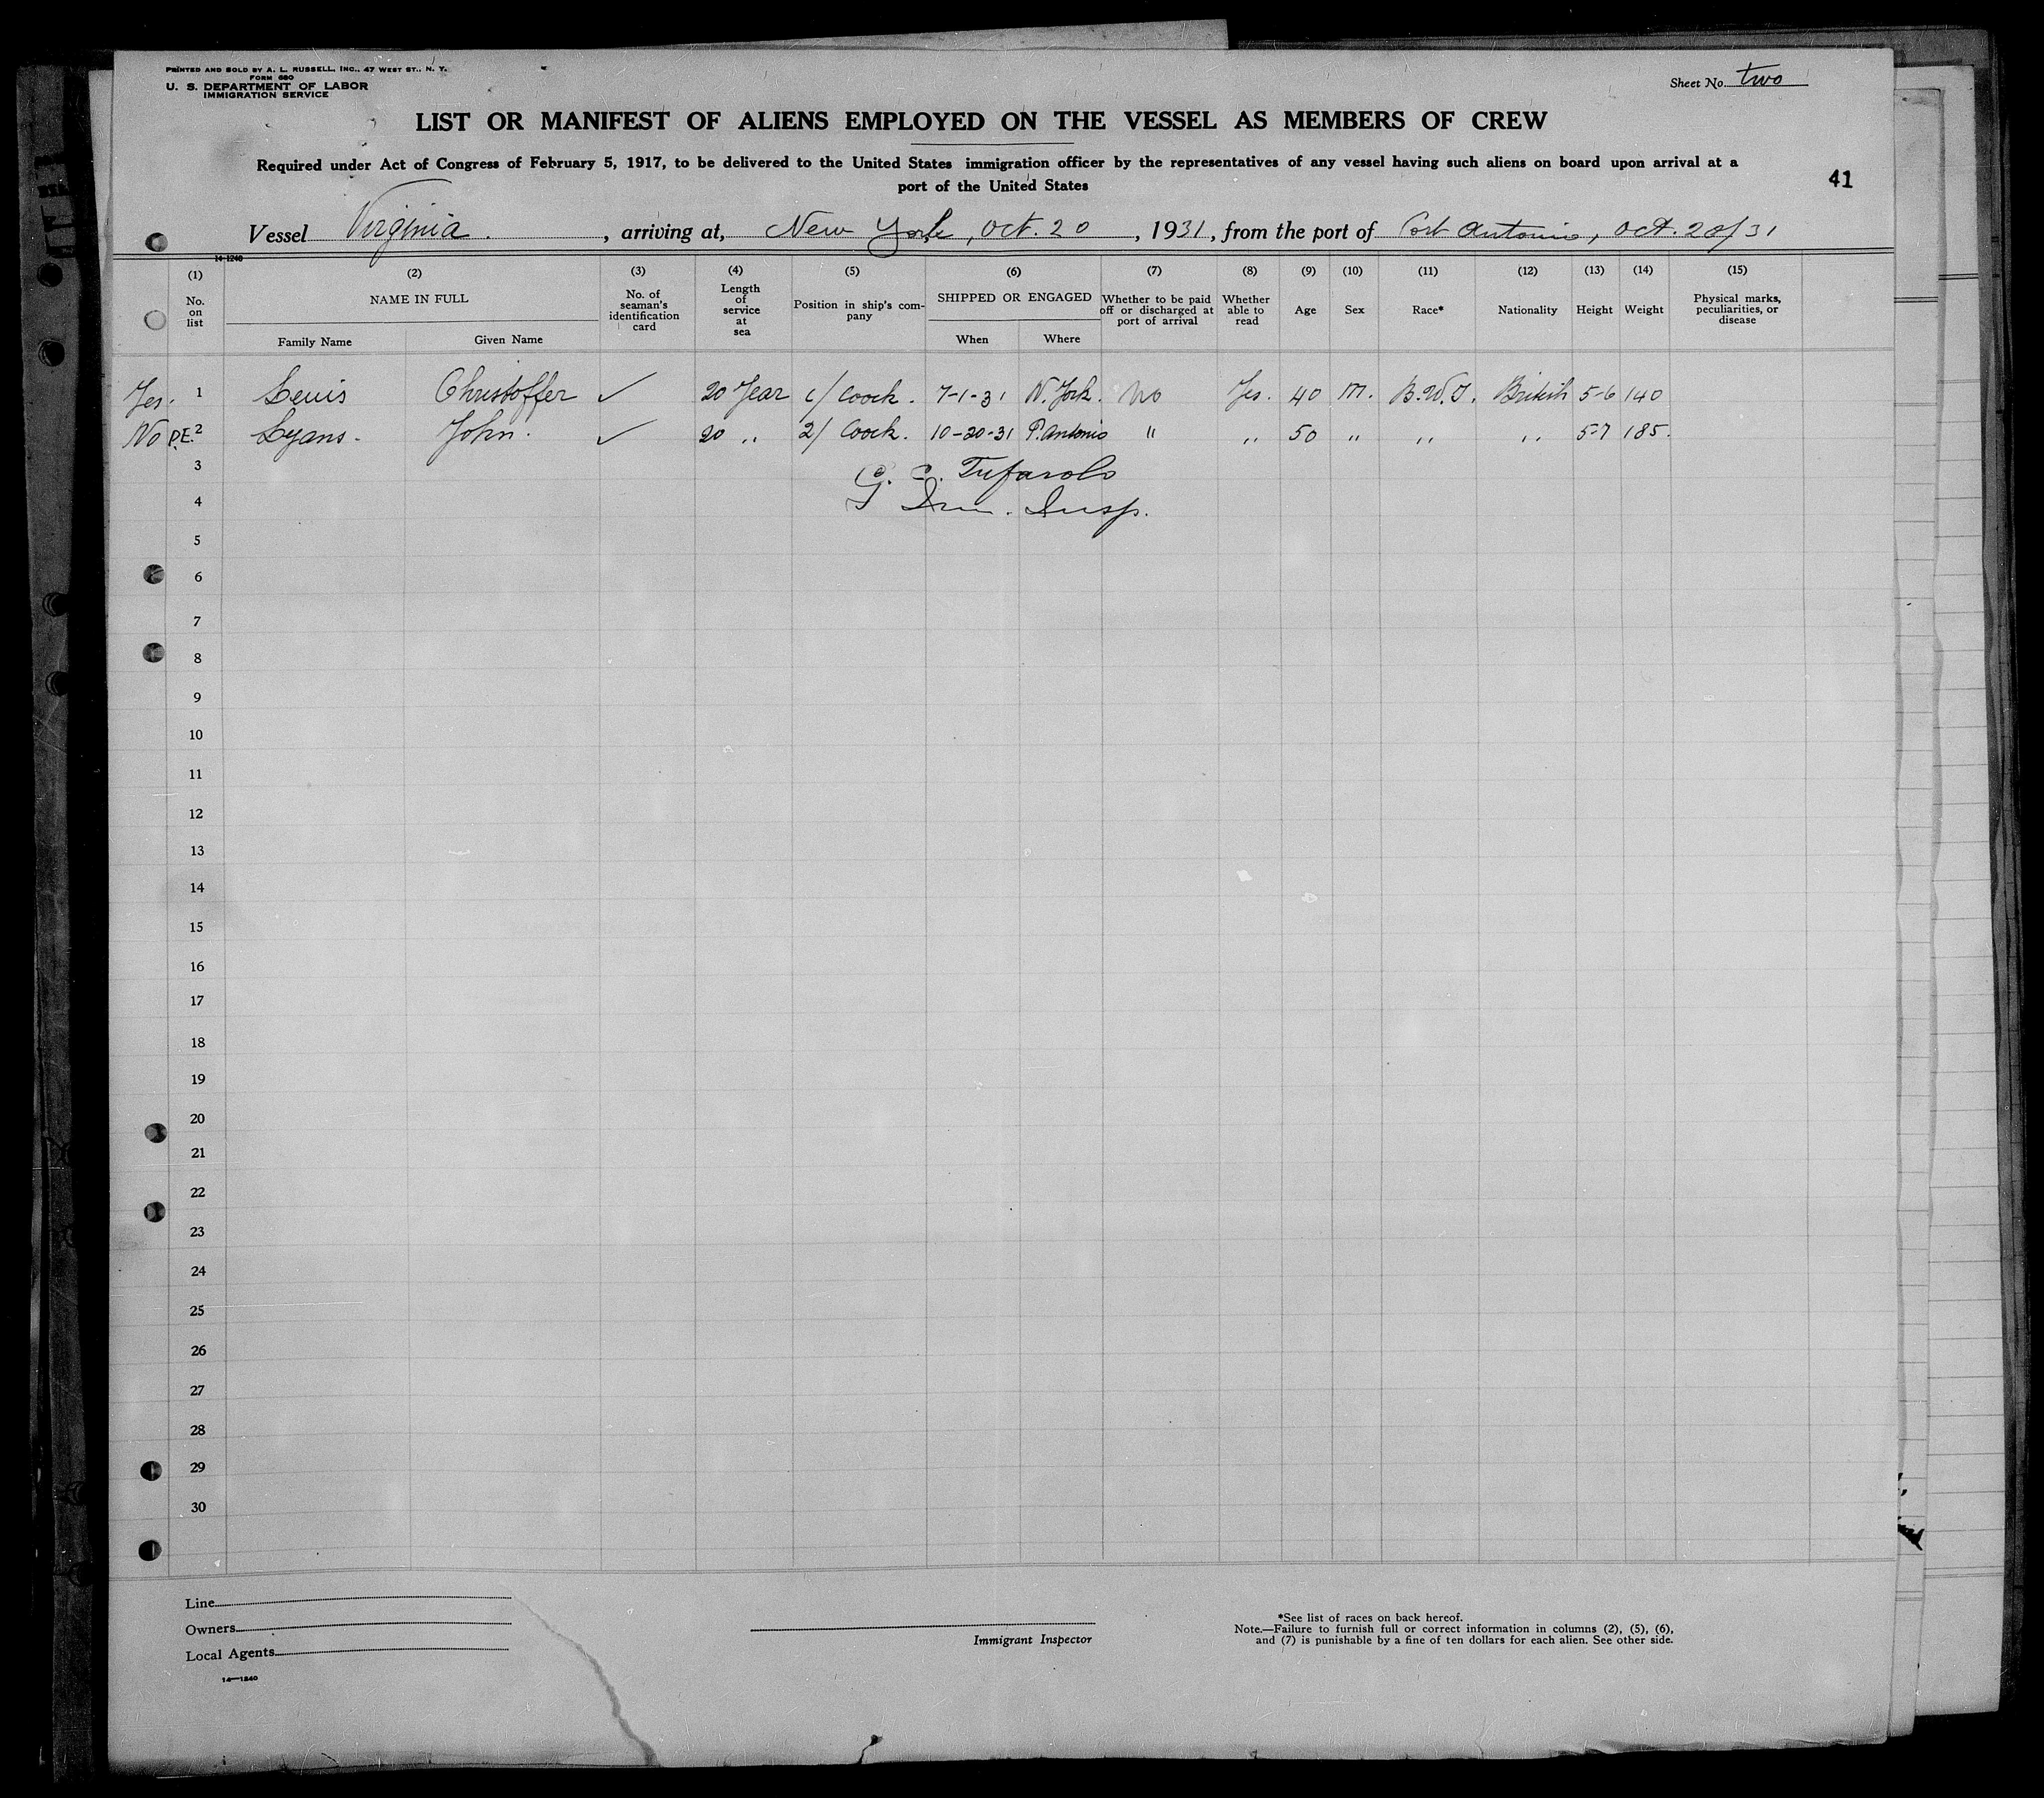 PRINTED AND SOLD BY A. L. RUSSELL, INC., 47 WEST ST., N. Y.
FORM 680
U. S. DEPARTMENT OF LABOR
IMMIGRATION SERVICE
Sheet No. two
LIST OR MANIFEST OF ALIENS EMPLOYED ON THE VESSEL AS MEMBERS OF CREW
Required under Act of Congress of February 5, 1917, to be delivered to the United States immigration officer by the representatives of any vessel having such aliens on board upon arrival at a
port of the United States
41
Vessel Virginia. , arriving at, New York, Oct. 20 , 1931, from the port of Port Antonio, Oct. 20/31
14-1240
(1) (2) (3) (4) (5) (6) (7) (8) (9) (10) (11) (12) (13) (14) (15)
No. on list NAME IN FULL Family Name Given Name No. of seaman's identification card Length of service at sea Position in ship's company SHIPPED OR ENGAGED When Where Whether to be paid off or discharged at port of arrival Whether able to read Age Sex Race* Nationality Height Weight Physical marks, peculiarities, or disease
Yes. 1 Lewis Christoffer ✓ 20 Year c/ Coock. 7-1-31 N. York. No Yes. 40 M. B.W.I. British 5-6 140
No P.E. 2 Lyans. John. ✓ 20 " 2/ Coock. 10-20-31 P. Antonio " " 50 " " " 5-7 185.
3 G. C. Tufarolo
4 Imm. Insp.
5
6
7
8
9
10
11
12
13
14
15
16
17
18
19
20
21
22
23
24
25
26
27
28
29
30
Line
Owners
Local Agents
14—1240
Immigrant Inspector
*See list of races on back hereof.
Note.—Failure to furnish full or correct information in columns (2), (5), (6),
and (7) is punishable by a fine of ten dollars for each alien. See other side.